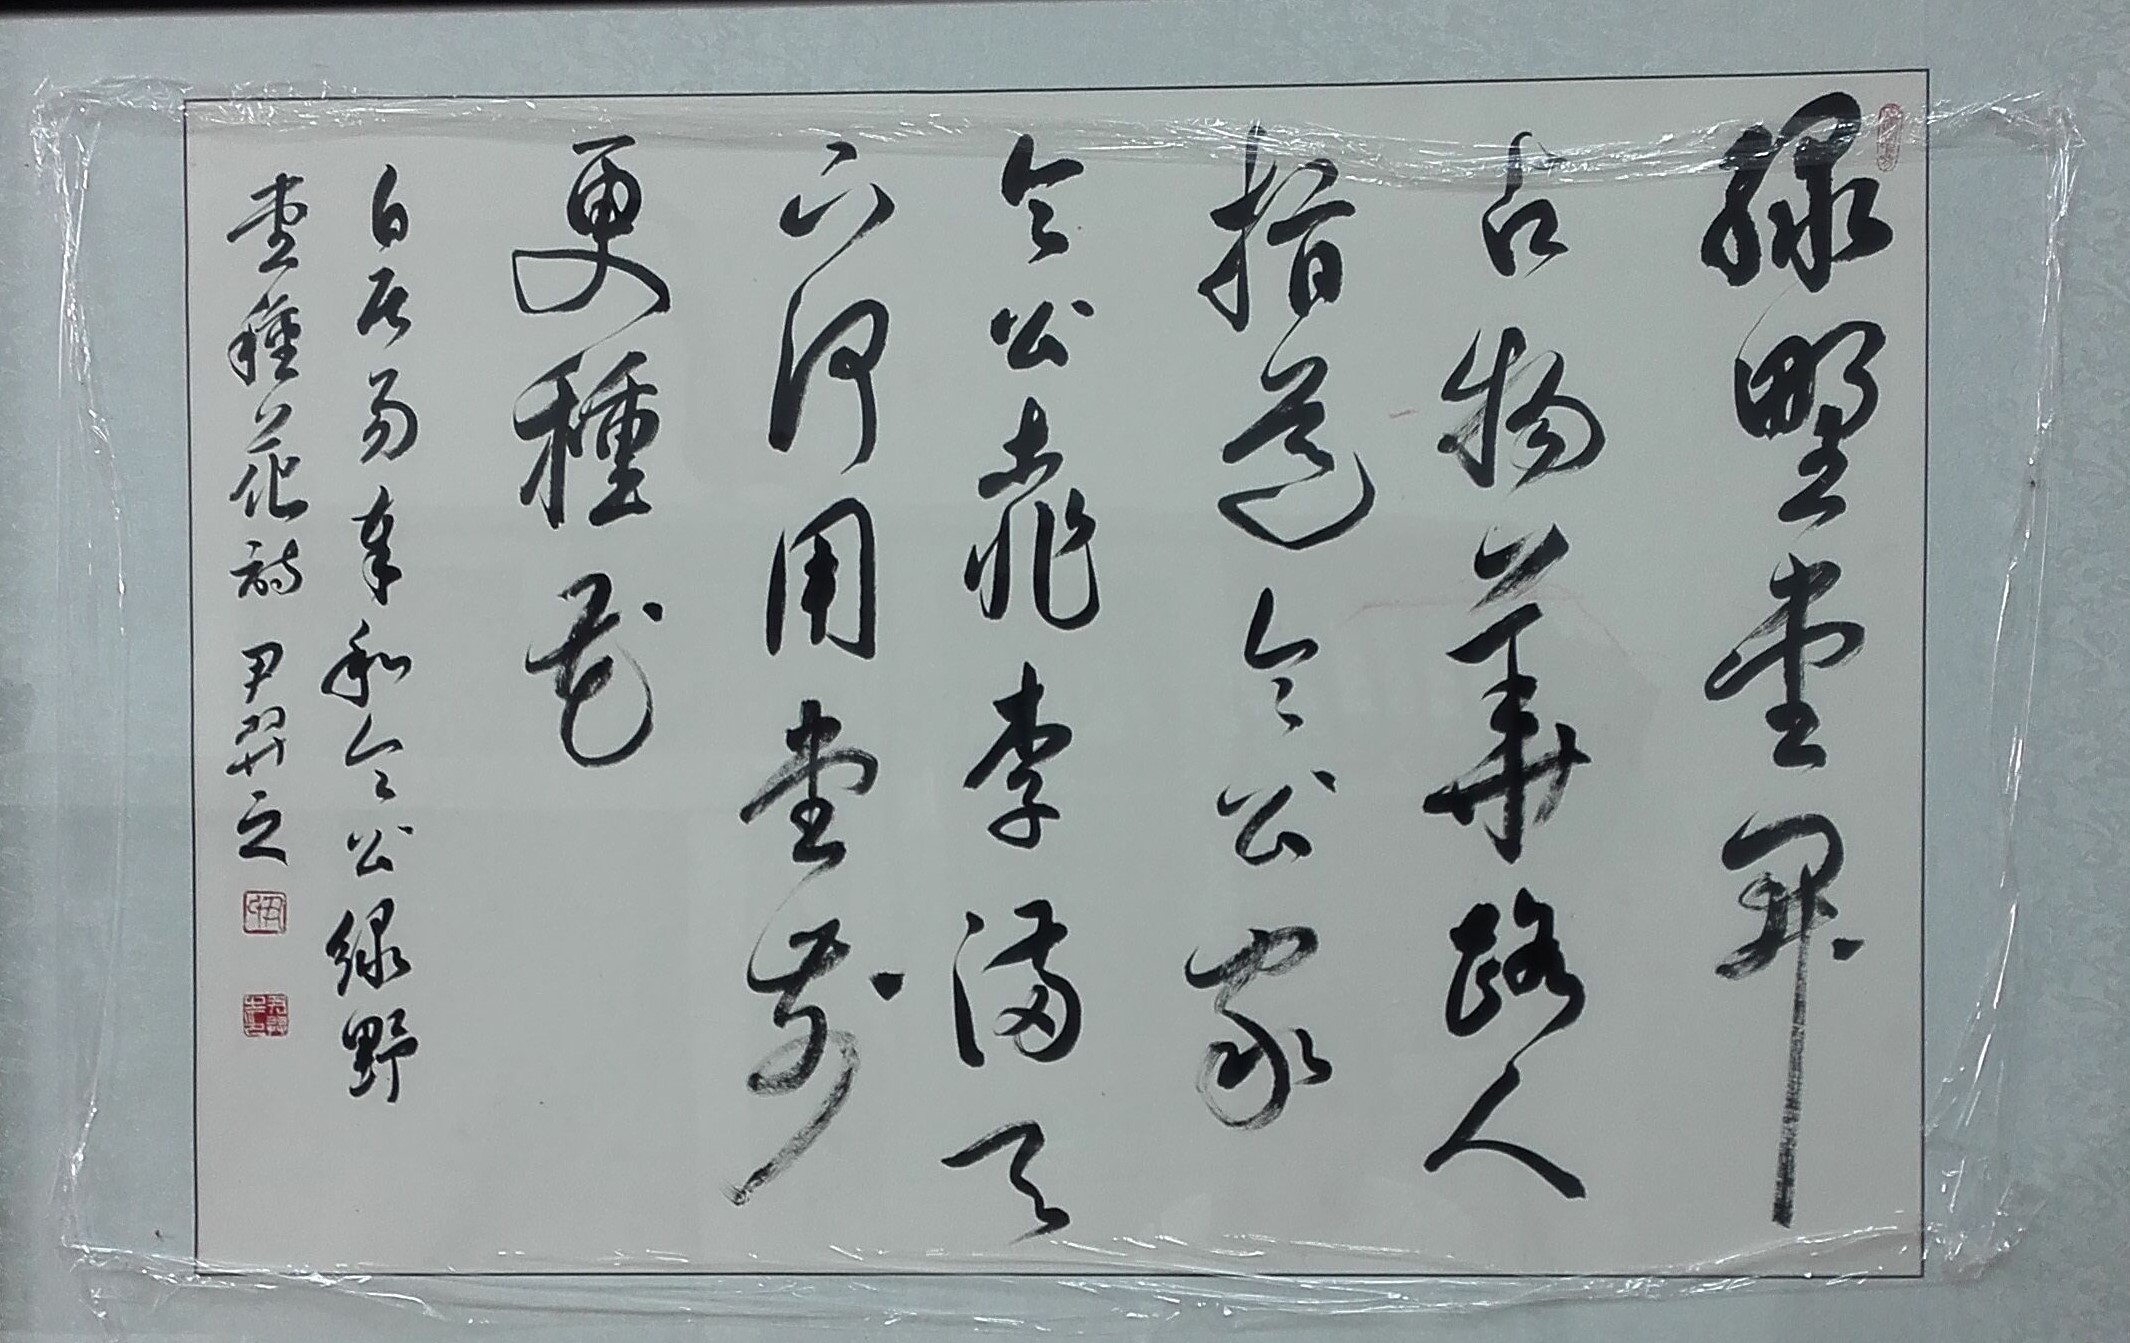 綠野堂開
占物華路人
指道令公家
令公桃李滿天
下何用堂前
更種花
白居易奉和令公綠野
堂種花詩 尹羿之